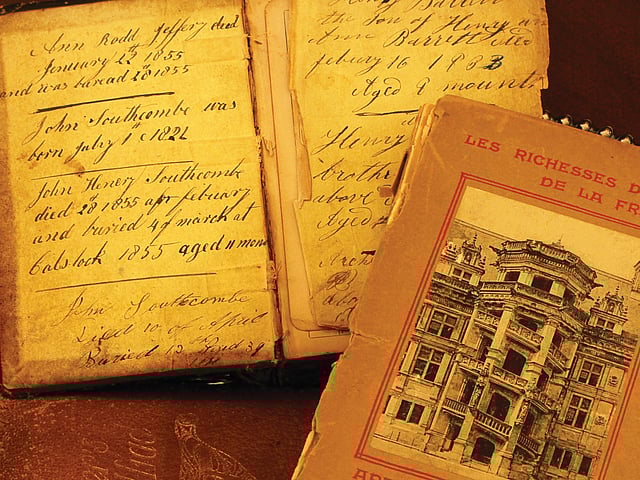 Ann Rodd Jeffery died
January 22th 1855
and was buread 28 1855
John Southcombe was
born July 1st 1822
John Henery Southcomb
died 28 1855 apr febuary
and buried 4 of march at
Calstock 1855 aged 11 mon
John Southcombe
Died 10 of April
Buried 13
the son of Henry an
Ann Barrett died
febury 16 1883
Aged 9 mounth
Henry
brothe
above
Aged
LES RICHESSES D
DE LA FR